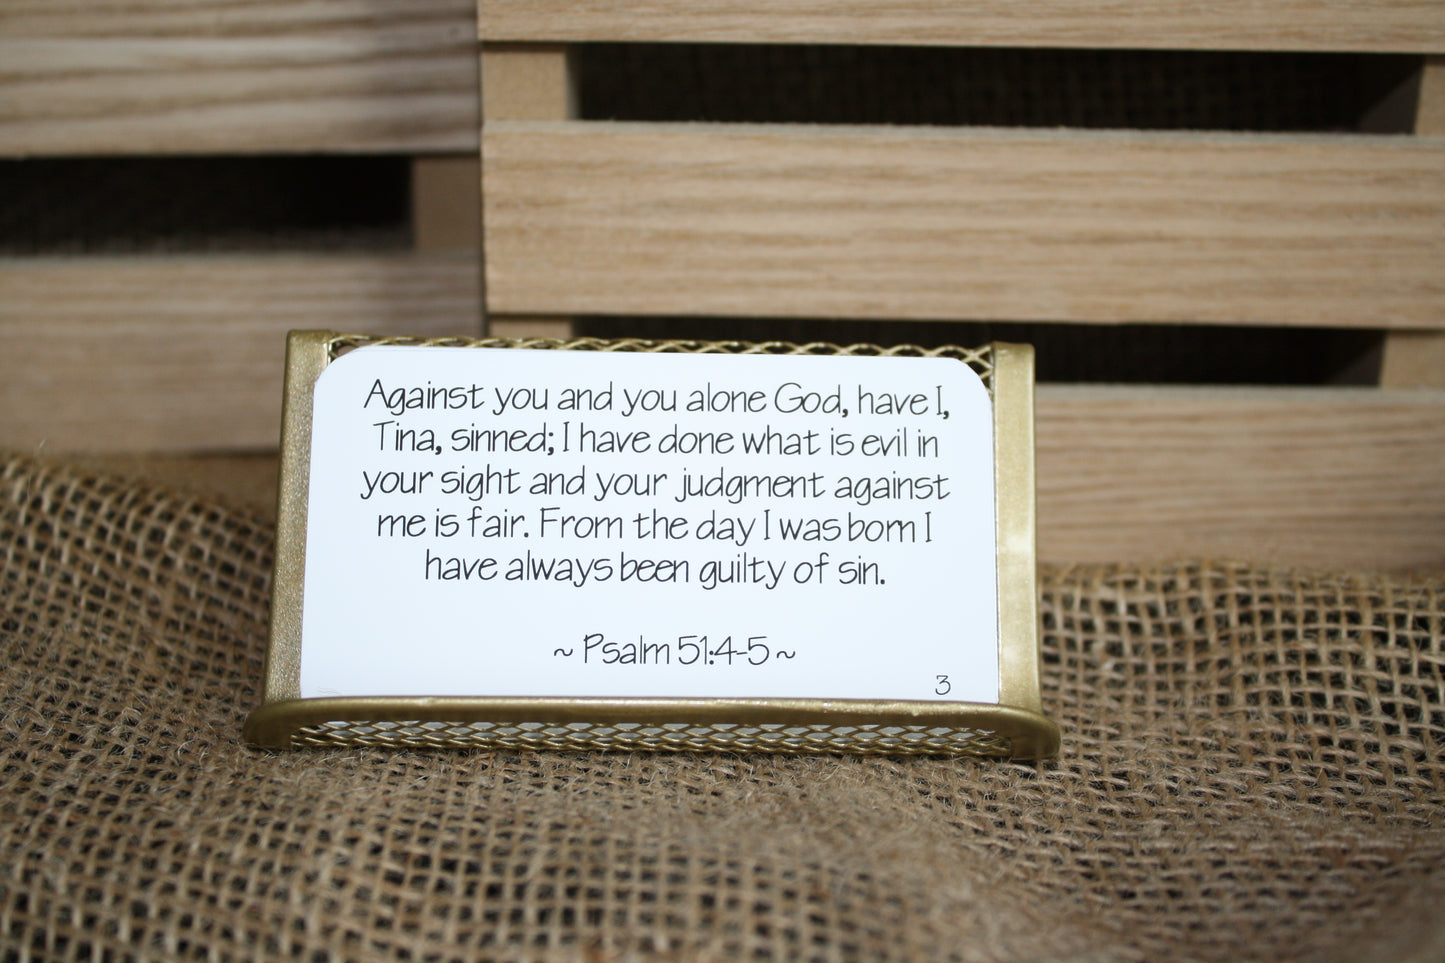 Against you and you alone God, have I,
Tina, sinned; I have done what is evil in
your sight and your judgment against
me is fair. From the day I was born I
have always been guilty of sin.
~ Psalm 51:4-5 ~
3